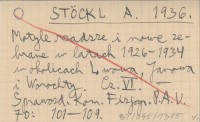 STÖCKL A. 1936.
Motyle rzadsze i nowe ze-
brane w latach 1926-1934
w okolicach Lwowa, Janowa
i Worochty. Cz. VI.
Sprawozd. Kom. Fizjogr. P.A.U.
70: 101-109.